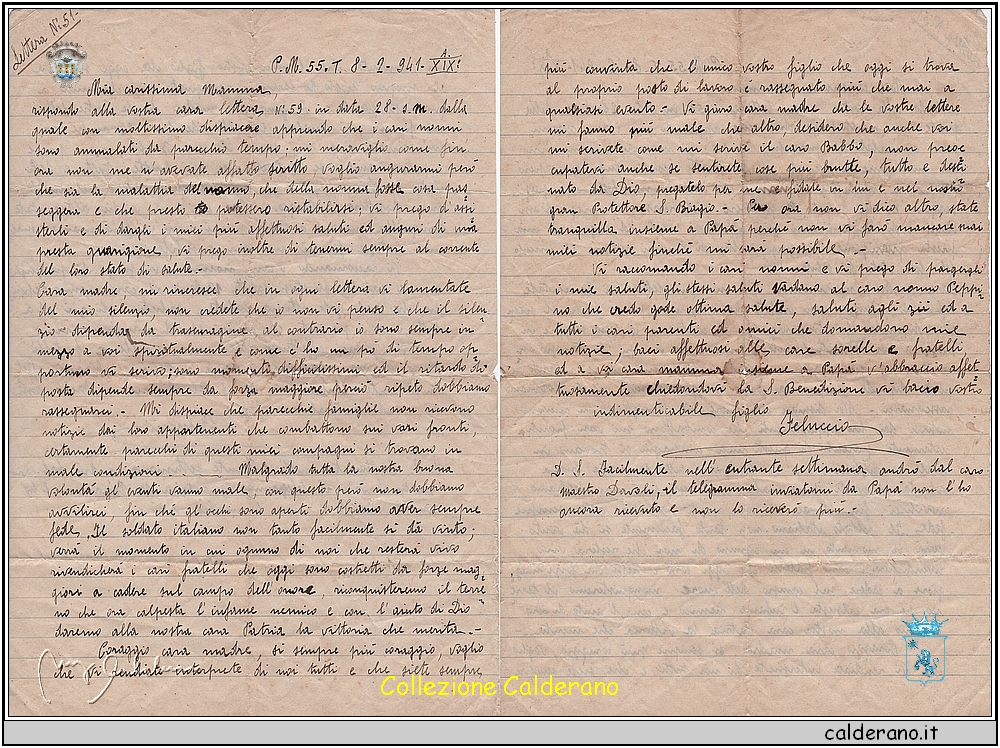 Lettera N. 51-
P.M. 55. T. 8- 2- 941- A. XIX!
Mia carissima Mamma,
rispondo alla vostra cara lettera N: 59 in data 28- s.m. dalla
quale con moltissimo dispiacere apprendo che i cari nonni
sono ammalati da parecchio tempo. mi meraviglio come fin
ora non me n'avevate affatto scritto, voglio augurarmi però
che sia la malattia del nonno che della nonna fosse cosa pas=
seggera e che presto potessero ristabilirsi; vi prego d'assi=
sterli e di dargli i miei più affettuosi saluti ed auguri di una
presta guarigione, vi prego inoltre di tenermi sempre al corrente
del loro stato di salute.-
Cara madre mi rincresce che in ogni lettera vi lamentate
del mio silenzio, non credete che io non vi penso e che il silen=
zio dipenda da trascuragine, al contrario io sono sempre in
mezzo a voi spiritualmente e come c'ho un pó di tempo op=
portuno vi scrivo; sono momenti difficolissimi ed il ritardo di
posta dipende sempre da forza maggiore perció ripeto dobbiamo
rassegnarci.- Mi dispiace che parecchie famiglie non ricevono
notizie dai loro appartenenti che combattono sui vari fronti,
certamente parecchi di questi miei compagni si trovano in
male condizioni Malgrado tutta la nostra buona
volontá gl'eventi vanno male, con questo peró non dobbiamo
avvilirci, fin ché gl'occhi sono aperti dobbiamo aver sempre
fede. Il soldato italiano non tanto facilmente si dá vinto;
verrá il momento in cui ognuno di noi che resterá vivo
rivendicherá i cari fratelli che oggi sono costretti da forze mag=
giori a cadere sul campo dell'onore, riconquisteremo il terre=
no che ora calpesta l'infame nemico e con l'aiuto di Dio
daremo alla nostra cara Patria la vittoria che merita.-
Coraggio cara madre, si sempre più coraggio, voglio
che vi rendiate interprete di noi tutti e che siete sempre
più convinta che l'unico vostro figlio che oggi si trova
al proprio posto di lavoro è rassegnato più che mai a
qualsiasi evento.- Vi giuro cara madre che le vostre lettere
mi fanno più male che altro, desidero che anche voi
mi scrivete come mi scrive il caro Babbo, non preoc=
cupatevi anche se sentirete cose più brutte, tutto e desti=
nato da Dio, pregatelo per me e fidate in lui e nel nostro
gran Protettore S. Biagio.- Per ora non vi dico altro, state
tranquilla insieme a Papá perché non vi faró mancare mai
miei notizie finché mi sará possibile.-
Vi raccomando i cari nonni e vi prego di porgergli
i mie saluti, gli stessi saluti vadano al caro nonno Peppi=
no che credo gode ottima salute, saluti agli zii ed a
tutti i cari parenti ed amici che domandono mie
notizie; baci affettuosi alle care sorelle e fratelli,
ed a voi cara mamma insieme a Papá v'abbraccio affet=
tuosamente chiedendovi la S. Benedizione vi bacio vostro
indimenticabile figlio
Feluccio
D. S. Facilmente nell'entrante settimana andró dal caro
maestro Davoli, il telegramma inviatomi da Papá non l'ho
ancora ricevuto e non lo riceveró più.-
Collezione Calderano
calderano.it